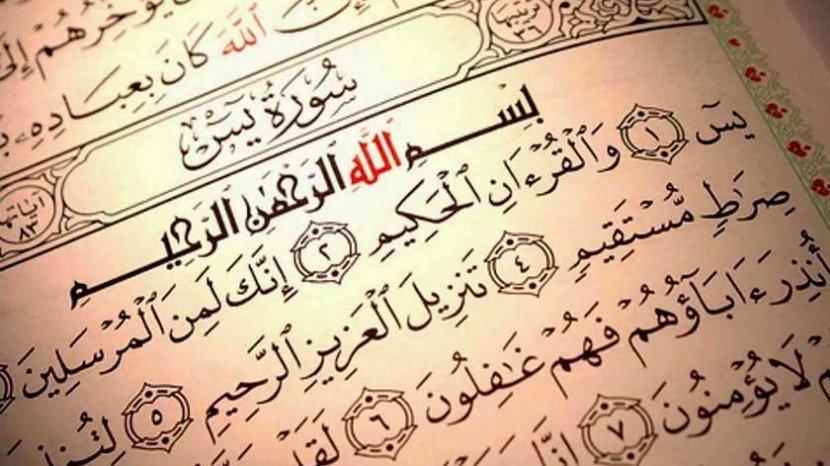 يُؤَخِّرُهُمْ إِلَىٰ
إِنَّ ٱللَّهَ كَانَ بِعِبَادِهِۦ
سُورَةُ يسٓ
ترتيبها ٣٦
آياتها ٨٣
بِسْمِ ٱللَّهِ ٱلرَّحْمَٰنِ ٱلرَّحِيمِ
يسٓ ١ وَٱلْقُرْءَانِ ٱلْحَكِيمِ ٢ إِنَّكَ لَمِنَ ٱلْمُرْسَلِينَ
صِرَٰطٍ مُّسْتَقِيمٍ ٤ تَنزِيلَ ٱلْعَزِيزِ ٱلرَّحِيمِ ٥ لِتُنذِرَ
أُنذِرَ ءَابَآؤُهُمْ فَهُمْ غَٰفِلُونَ ٦ لَقَدْ
لَا يُؤْمِنُونَ ٧ إِنَّا